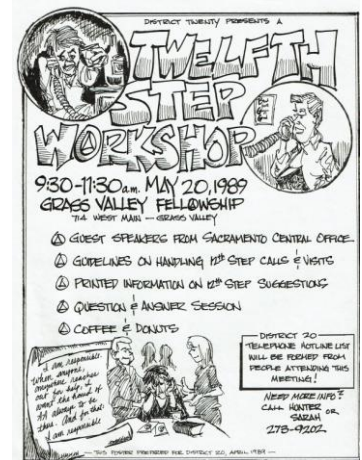 DISTRICT TWENTY PRESENTS A
TWELFTH
STEP
WORKSHOP
9:30-11:30 a.m. MAY 20, 1989
GRASS VALLEY FELLOWSHIP
714 WEST MAIN — GRASS VALLEY
GUEST SPEAKERS FROM SACRAMENTO CENTRAL OFFICE
GUIDELINES ON HANDLING 12th STEP CALLS & VISITS
PRINTED INFORMATION ON 12th STEP SUGGESTIONS
QUESTION & ANSWER SESSION
COFFEE & DONUTS
I am responsible.
When anyone,
anywhere, reaches
out for help, I
want the hand of
AA always to be
there. And for that:
I am responsible
DISTRICT 20
TELEPHONE HOTLINE LIST
WILL BE FORMED FROM
PEOPLE ATTENDING THIS
MEETING!
NEED MORE INFO?
CALL HUNTER
OR
SARAH
273-9202
— THIS POSTER PREPARED FOR DISTRICT 20, APRIL 1989 —